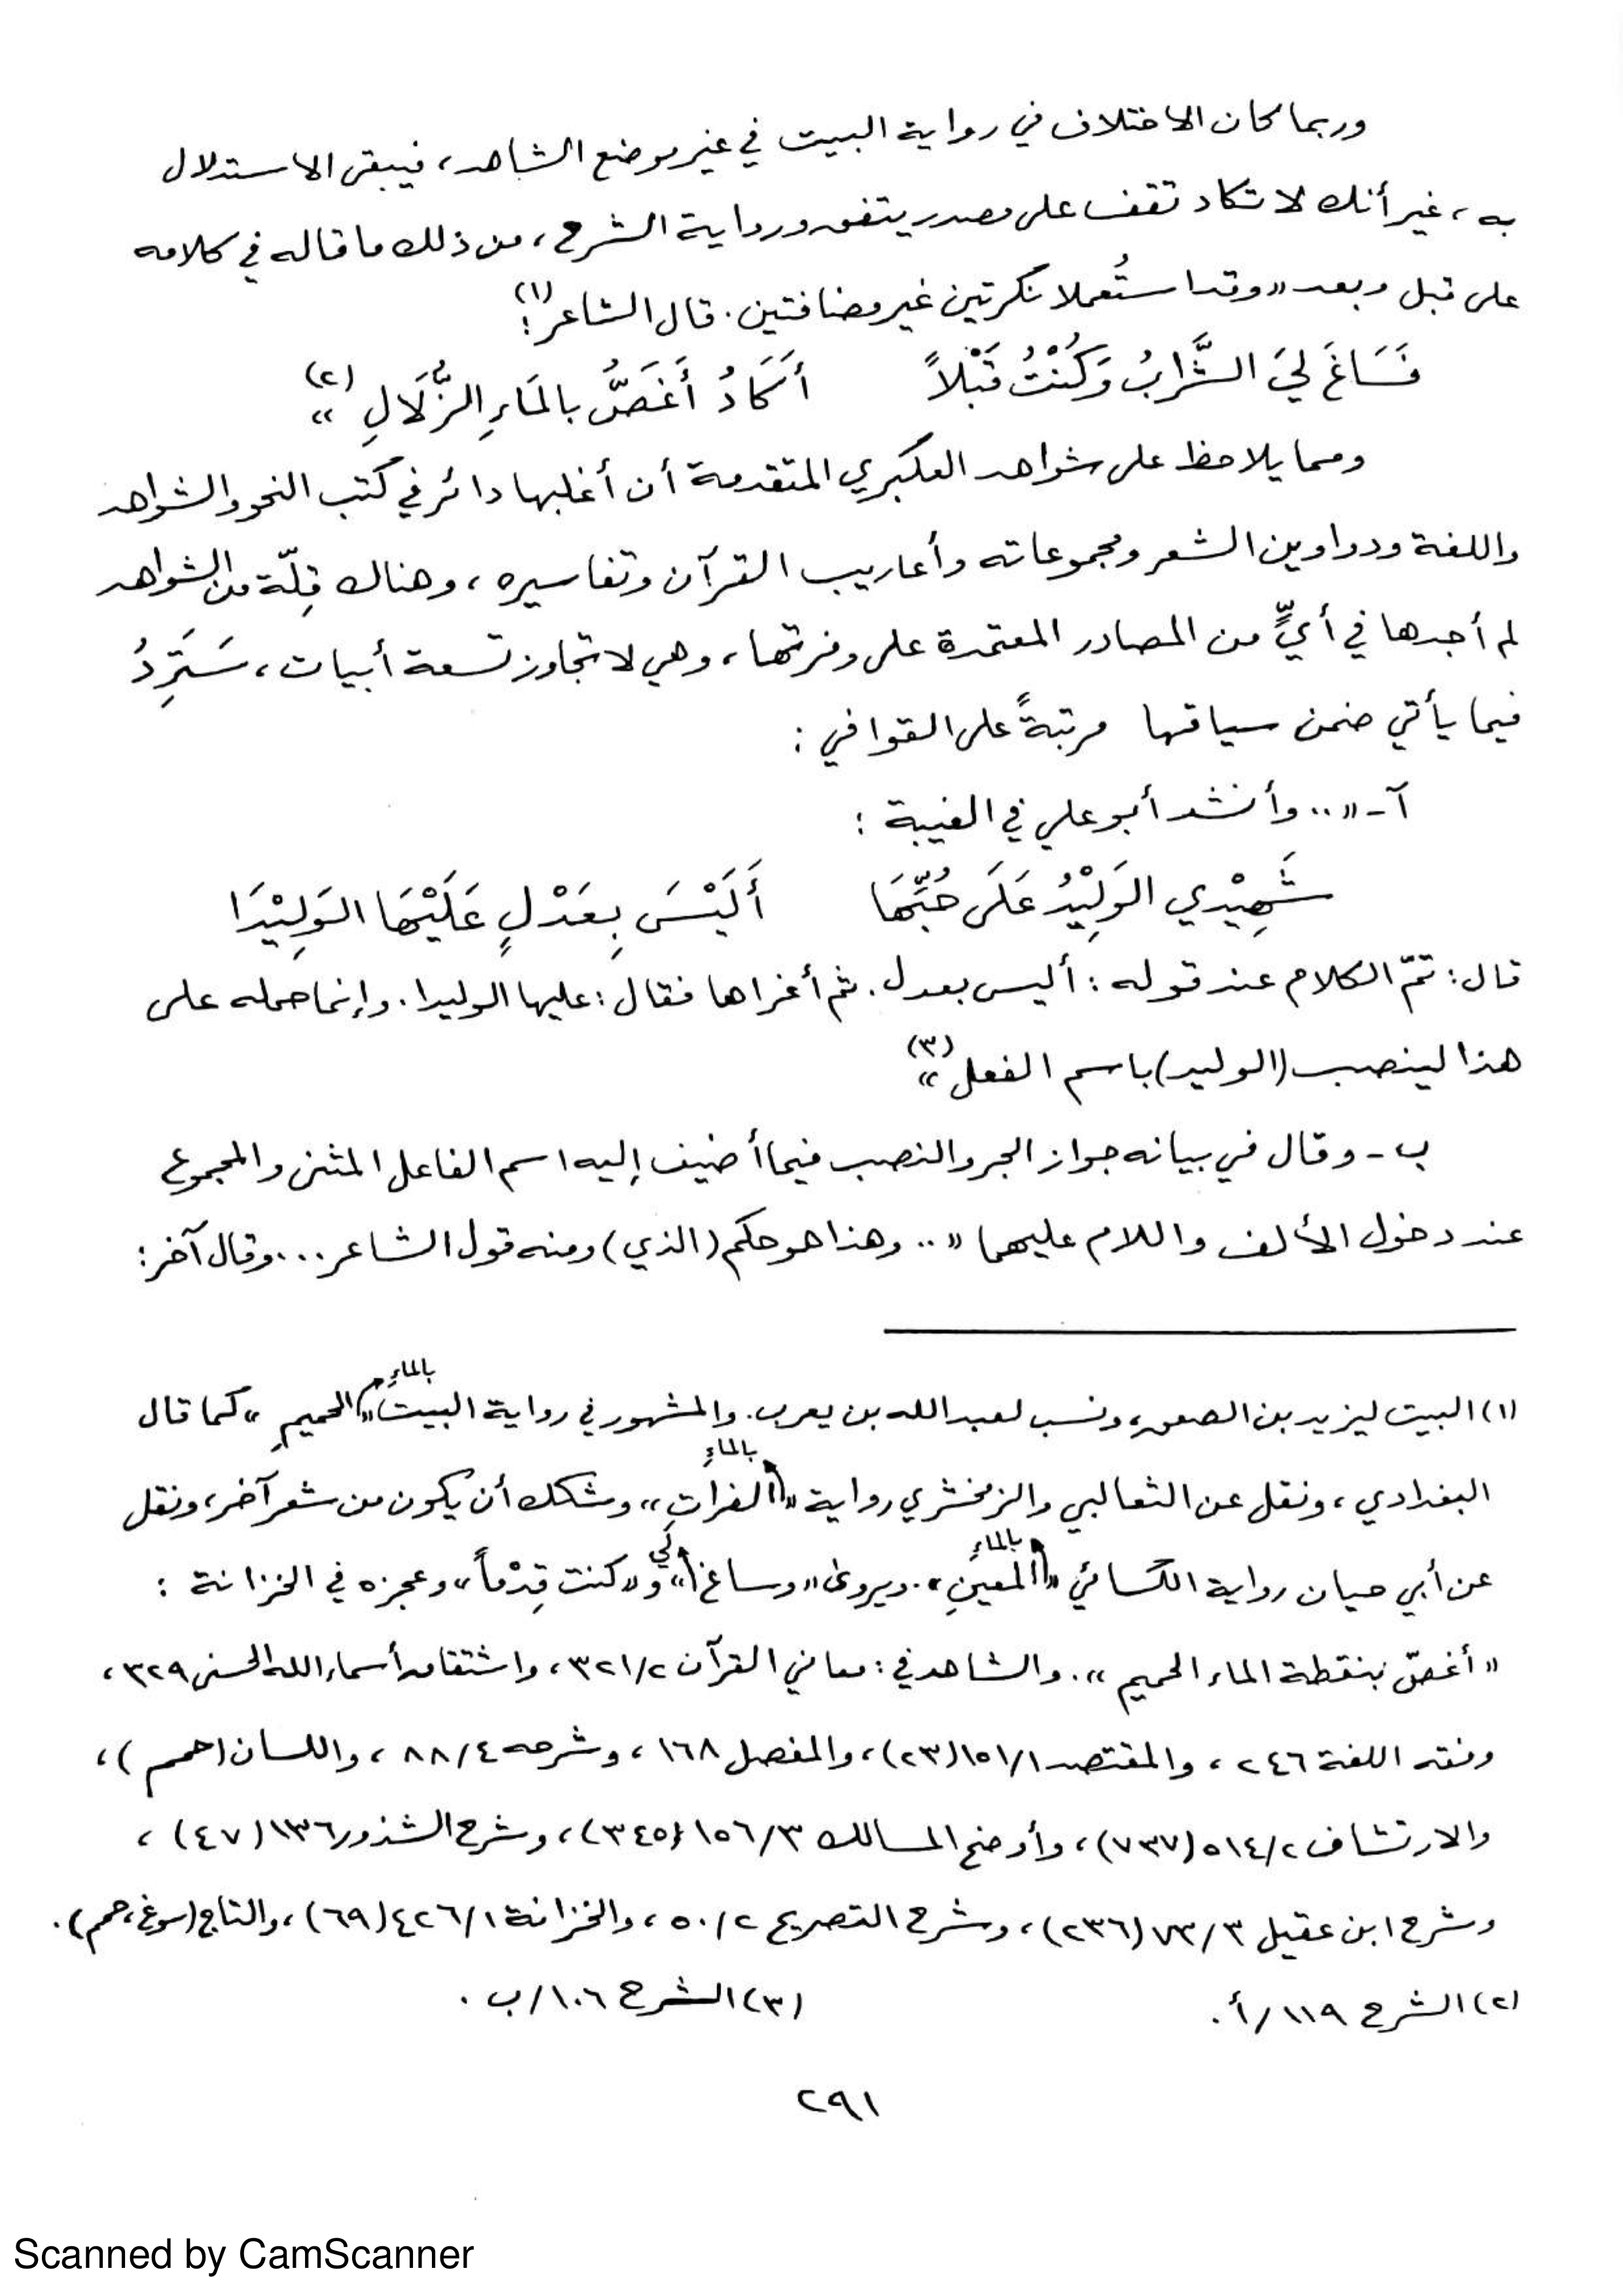 وربما كان الاختلاف في رواية البيت في غير موضع الشاهد، فيبقى الاستدلال
به، غير أنك لا تكاد تقف على مصدر يتفق ورواية الشرح، من ذلك ما قاله في كلامه
على قبل وبعد «وقد استُعملا نكرتين غير مضافتين. قال الشاعر(١):
فَسَاغَ لِيَ الشَّرَابُ وَكُنْتُ قَبْلاً أَكَادُ أَغَصُّ بالمَاءِ الزُّلَالِ»(٢)
ومما يلاحظ على شواهد العكبري المتقدمة أن أغلبها دائر في كتب النحو والشواهد
واللغة ودواوين الشعر ومجموعاته وأعاريب القرآن وتفاسيره، وهناك قِلّة من الشواهد
لم أجدها في أيٍّ من المصادر المعتمدة على وفرتها، وهي لا تجاوز تسعة أبيات، سَتَرِدُ
فيما يأتي ضمن سياقها مرتبةً على القوافي:
آ- «.. وأنشد أبو علي في الغيبة:
شَهِيْدِي الوَلِيْدُ عَلَى حُبِّهَا أَلَيْسَ بِعَدْلٍ عَلَيْهَا الوَلِيْدَا
قال: تمّ الكلام عند قوله: أليس بعدل. ثم أغراها فقال: عليها الوليدا. وإنما حمله على
هذا لينصب (الوليد) باسم الفعل»(٣)
ب- وقال في بيانه جواز الجر والنصب فيما أضيف إليه اسم الفاعل المثنى والمجموع
عند دخول الألف واللام عليهما «.. وهذا هو حكم (الذي) ومنه قول الشاعر... وقال آخر:
(١) البيت ليزيد بن الصعق، ونسب لعبد الله بن يعرب. والمشهور في رواية البيت «بالماءِ الحميمِ» كما قال
البغدادي، ونقل عن الثعالبي والزمخشري رواية «بالماءِ الفراتِ» وشكك أن يكون من شعر آخر، ونقل
عن أبي حيان رواية الكسائي «بالماءِ المعينِ». ويروى «وساغ لي» و«كنت قِدْماً» وعجزه في الخزانة:
«أغصّ بنقطة الماء الحميم». والشاهد في: معاني القرآن ٣٢١/٢، واشتقاق أسماء الله الحسنى ٣٢٩،
وفقه اللغة ٢٤٦، والمقتصد ١٥١/١(٢٣)، والمفصل ١٦٨، وشرحه ٨٨/٤، واللسان (حمم)،
والارتشاف ٥١٤/٢ (٧٣٧)، وأوضح المسالك ١٥٦/٣ (٣٤٥)، وشرح الشذور ١٣٦ (٤٧)،
وشرح ابن عقيل ٧٣/٣ (٢٣٦)، وشرح التصريح ٥٠/٢، والخزانة ٤٢٦/١ (٦٩)، والتاج (سوغ، حمم).
(٢) الشرح ١١٩/أ. (٣) الشرح ١٠٦/ب.
٢٩١
Scanned by CamScanner